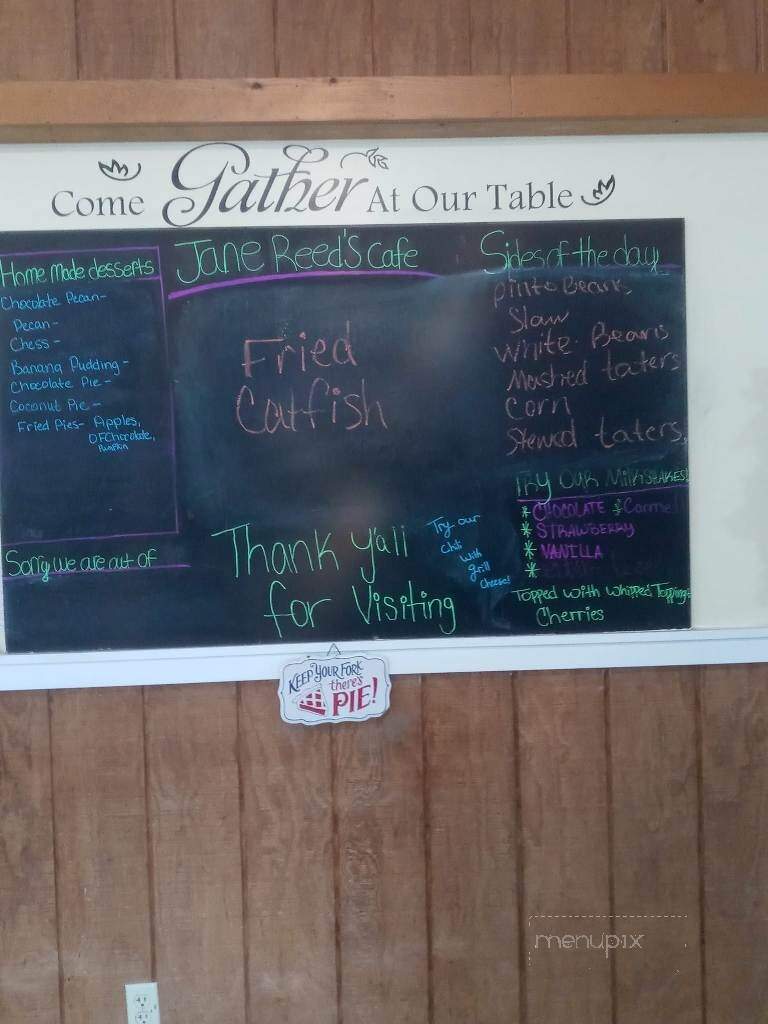 Come Gather At Our Table
Home made desserts
Chocolate Pecan-
Pecan-
Chess-
Banana Pudding-
Chocolate Pie-
Coconut Pie-
Fried Pies- Apples,
Chocolate,
Pumpkin
Sorry we are out of
Jane Reed's Cafe
Fried
Catfish
Thank Y'all
for Visiting
Try our
Chili
with
grill
Cheese!
Sides of the day
Pinto Beans
Slaw
White Beans
Mashed taters
Corn
Stewed taters
Try Our Milkshakes!
* CHOCOLATE * Carmel
* STRAWBERRY
* VANILLA
*
Topped with Whipped Topping
Cherries
KEEP YOUR FORK
there's
PIE!
menupix